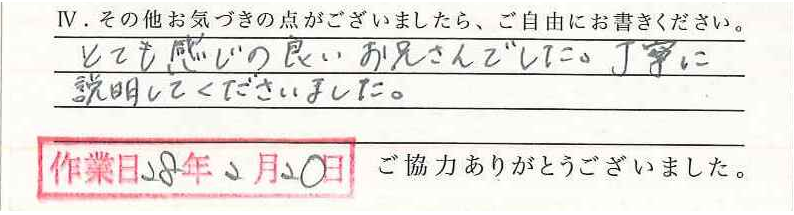 Ⅳ．その他お気づきの点がございましたら、ご自由にお書きください。
とても感じの良いお兄さんでした。丁寧に
説明してくださいました。
作業日28年2月20日 ご協力ありがとうございました。